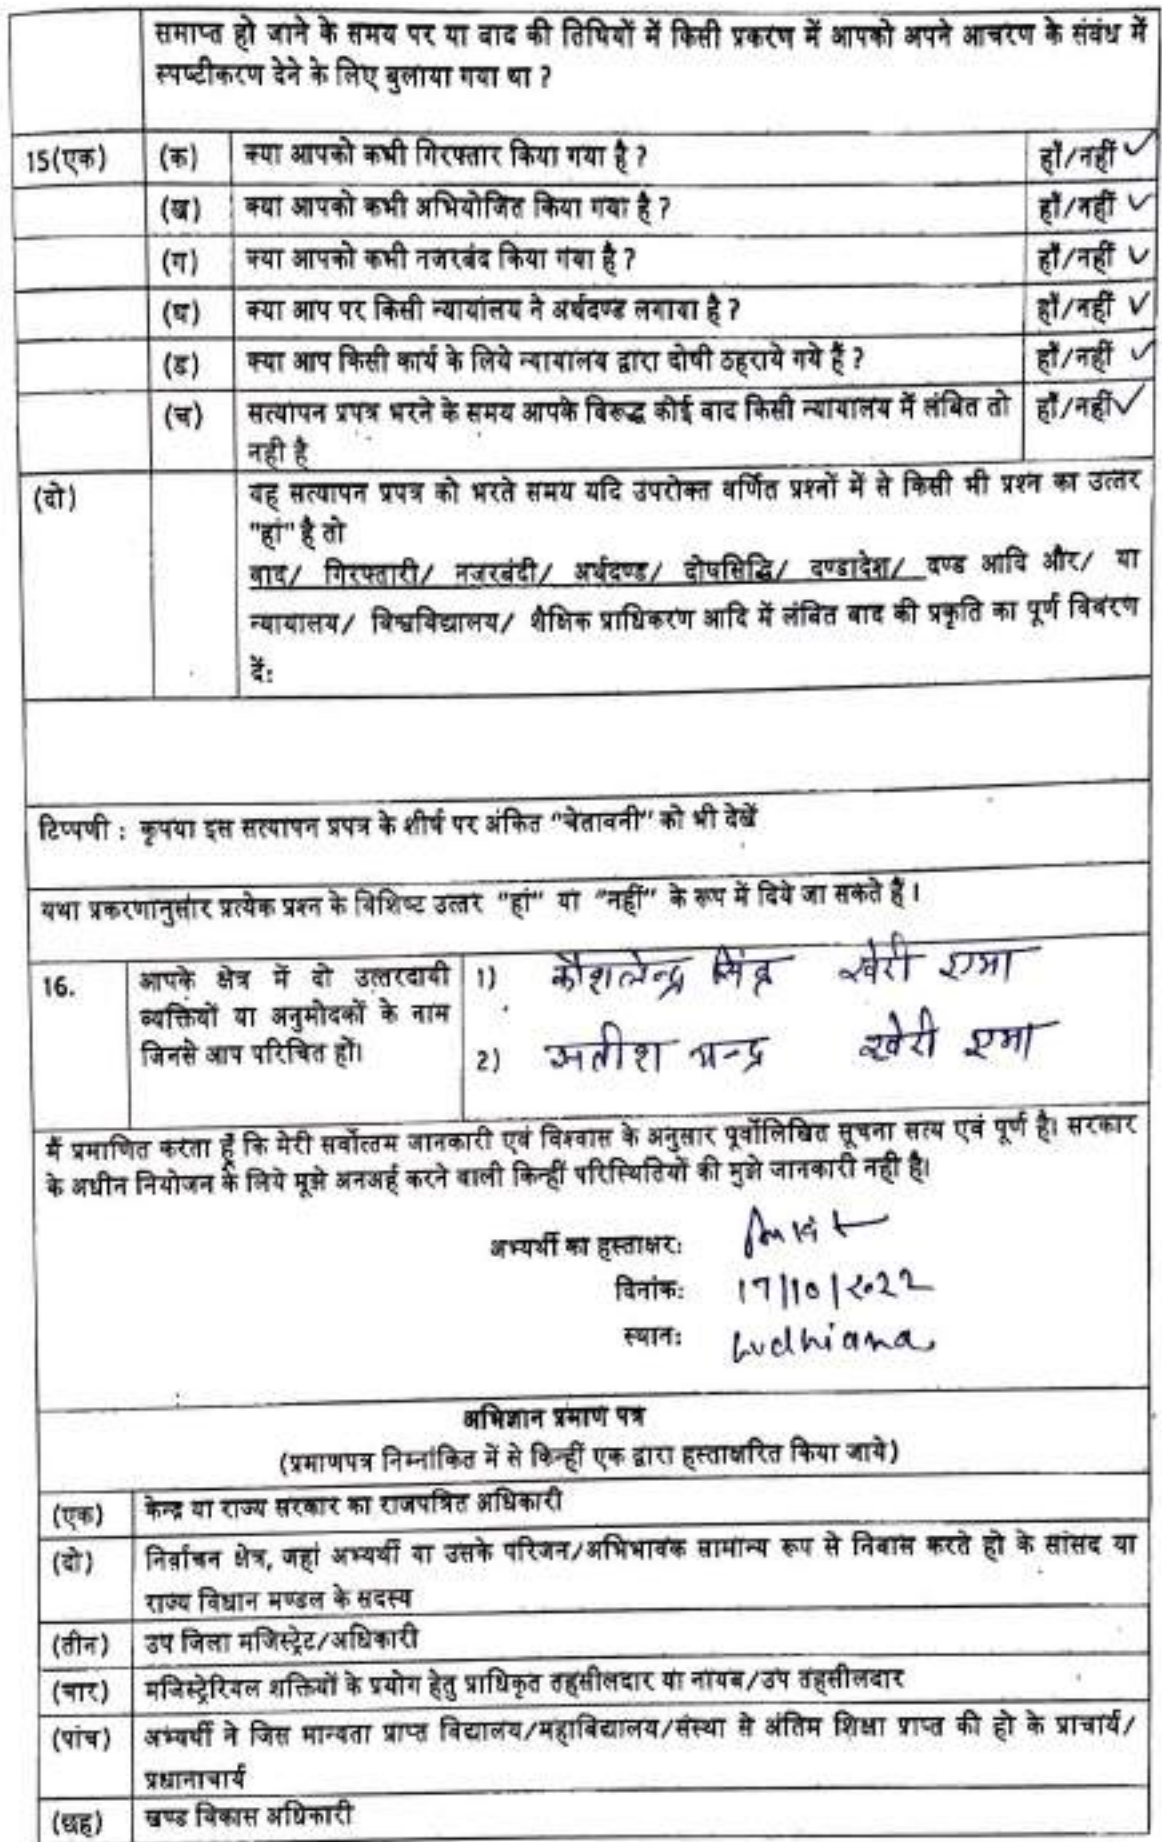 समाप्त हो जाने के समय पर या वाद की तिथियों में किसी प्रकरण में आपको अपने आचरण के संबंध में
स्पष्टीकरण देने के लिए बुलाया गया था ?
15(एक) (क) क्या आपको कभी गिरफ्तार किया गया है ? हाँ/नहीं ✓
(ख) क्या आपको कभी अभियोजित किया गया है ? हाँ/नहीं ✓
(ग) क्या आपको कभी नजरबंद किया गया है ? हाँ/नहीं ✓
(घ) क्या आप पर किसी न्यायालय ने अर्थदण्ड लगाया है ? हाँ/नहीं ✓
(ड) क्या आप किसी कार्य के लिये न्यायालय द्वारा दोषी ठहराये गये हैं ? हाँ/नहीं ✓
(च) सत्यापन प्रपत्र भरने के समय आपके विरूद्ध कोई वाद किसी न्यायालय में लंबित तो हाँ/नहीं ✓
नही है
(दो) वह सत्यापन प्रपत्र को भरते समय यदि उपरोक्त वर्णित प्रश्नों में से किसी भी प्रश्न का उत्तर
"हां" है तो
वाद/ गिरफ्तारी/ नजरबंदी/ अर्थदण्ड/ दोषसिद्धि/ दण्डादेश/ दण्ड आदि और/ या
न्यायालय/ विश्वविद्यालय/ शैक्षिक प्राधिकरण आदि में लंबित वाद की प्रकृति का पूर्ण विवरण
दें:
टिप्पणी : कृपया इस सत्यापन प्रपत्र के शीर्ष पर अंकित "चेतावनी" को भी देखें
यथा प्रकरणानुसार प्रत्येक प्रश्न के विशिष्ट उत्तर "हां" या "नहीं" के रूप में दिये जा सकते हैं ।
16. आपके क्षेत्र में दो उत्तरदायी 1) कौशलेन्द्र सिंह खेरी
व्यक्तियों या अनुमोदकों के नाम
जिनसे आप परिचित हों। 2) सतीश चन्द्र खेरी
मैं प्रमाणित करता हूँ कि मेरी सर्वोत्तम जानकारी एवं विश्वास के अनुसार पूर्वोलिखित सूचना सत्य एवं पूर्ण है। सरकार
के अधीन नियोजन के लिये मूझे अनअर्ह करने वाली किन्हीं परिस्थितियों की मुझे जानकारी नही है।
अभ्यर्थी का हस्ताक्षर: Ankit
दिनांक: 17/10/2022
स्थान: Ludhiana
अभिज्ञान प्रमाण पत्र
(प्रमाणपत्र निम्नांकित में से किन्हीं एक द्वारा हस्ताक्षरित किया जाये)
(एक) केन्द्र या राज्य सरकार का राजपत्रित अधिकारी
(दो) निर्वाचन क्षेत्र, जहां अभ्यर्थी या उसके परिजन/अभिभावक सामान्य रूप से निवास करते हो के सांसद या
राज्य विधान मण्डल के सदस्य
(तीन) उप जिला मजिस्ट्रेट/अधिकारी
(चार) मजिस्ट्रेरियल शक्तियों के प्रयोग हेतु प्राधिकृत तहसीलदार या नायब/उप तहसीलदार
(पांच) अभ्यर्थी ने जिस मान्यता प्राप्त विद्यालय/महाविद्यालय/संस्था से अंतिम शिक्षा प्राप्त की हो के प्राचार्य/
प्रधानाचार्य
(छह) खण्ड विकास अधिकारी